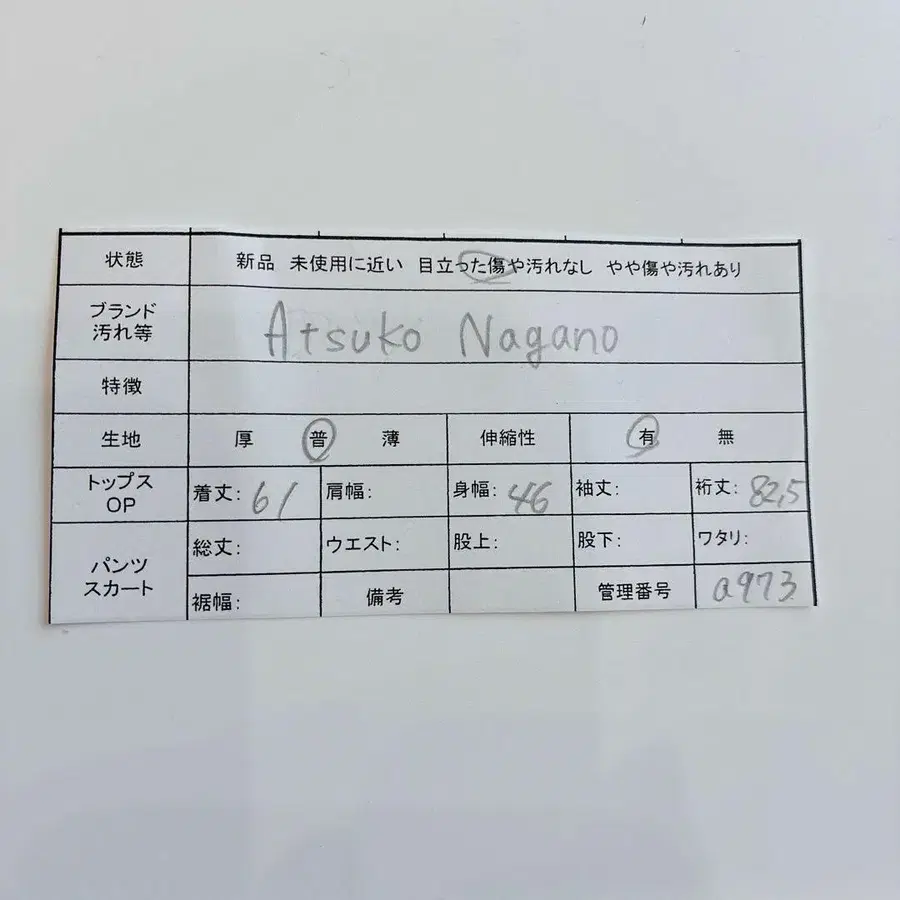 状態 新品 未使用に近い 目立った傷や汚れなし やや傷や汚れあり
ブランド
汚れ等
Atsuko Nagano
特徴
生地 厚 普 薄 伸縮性 有 無
トップス
OP
着丈: 61 肩幅: 身幅: 46 袖丈: 裄丈: 82,5
パンツ
スカート
総丈: ウエスト: 股上: 股下: ワタリ:
裾幅: 備考 管理番号 a973